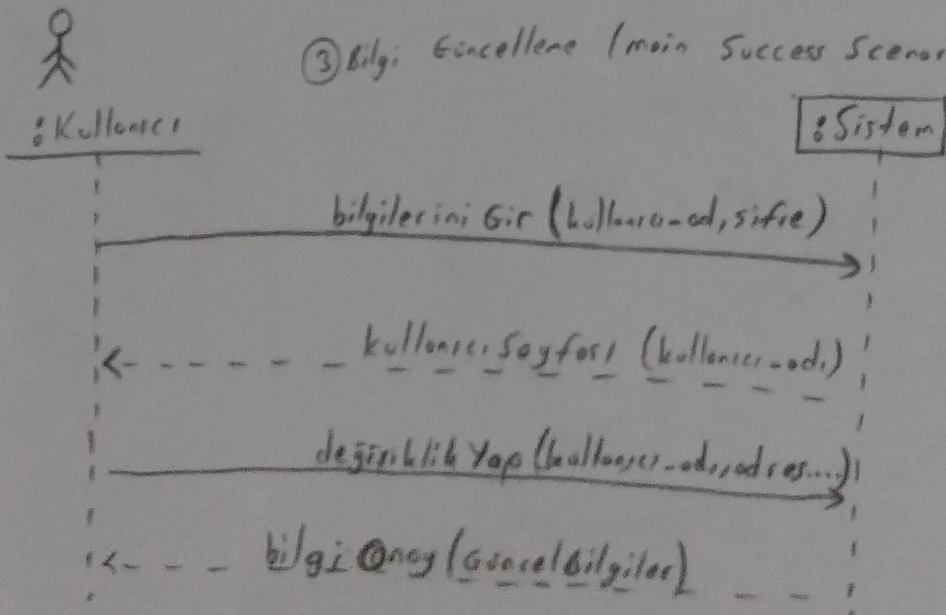 ③ Bilgi Güncelleme (main Success Scenar
:Kullanıcı
:Sistem
bilgilerini Gir (kullanıcı-ad, şifre)
kullanıcı Sayfası (kullanıcı-adı)
değişiklik Yap (kullanıcı-adı, adres....)
bilgi Onay (Güncel Bilgiler)